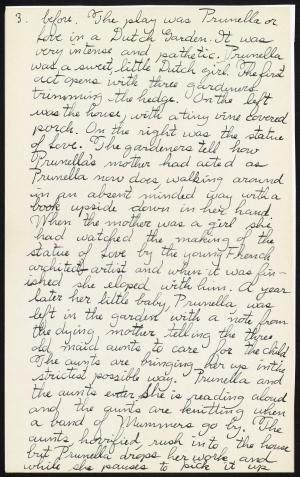 3. before. The play was Prunella or
Love in a Dutch Garden. It was
very intense and pathetic. Prunella
was a sweet, little Dutch girl. The first
act opens with three gardeners
trimming the hedge. On the left
was the house, with a tiny vine covered
porch. On the right was the statue
of Love. The gardeners tell how
Prunella's mother had acted as
Prunella now does, walking around
in an absent minded way with a
book upside down in her hand.
When the mother was a girl she
had watched the making of the
statue of Love by the young French
architect, artist and when it was fin-
ished she eloped with him. A year
later her little baby, Prunella was
left in the garden with a note from
the dying mother telling the three
old maid aunts to care for the child.
The aunts are bringing her up in the
strictest possible way. Prunella and
the aunts enter, she is reading aloud
and the aunts are knitting when
a band of Mummers go by. The
aunts horrified rush into the house
but Prunella drops her work and
while she pauses to pick it up